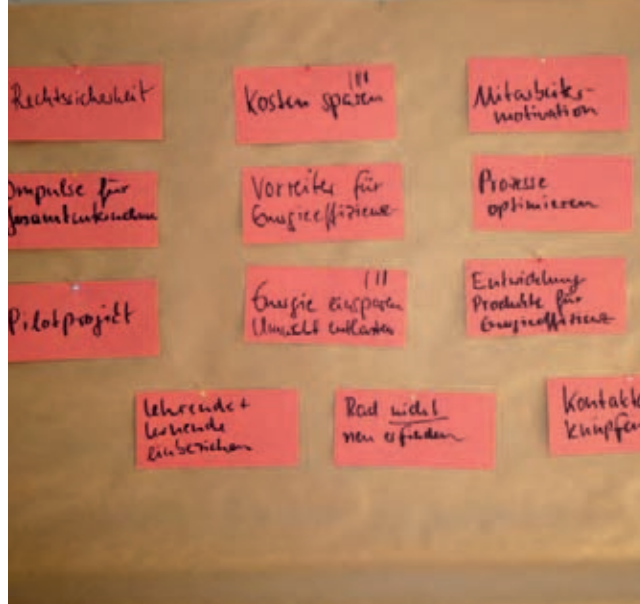 Rechtssicherheit
Kosten sparen
Mitarbeiter-
motivation
Impulse für
Gesamtunternehmen
Vorreiter für
Energieeffizienz
Prozesse
optimieren
Pilotprojekt
Energie einsparen
Umwelt entlasten
Entwicklung
Produkte für
Energieeffizienz
Lehrende +
Lernende
einbeziehen
Rad nicht
neu erfinden
Kontakte
knüpfen